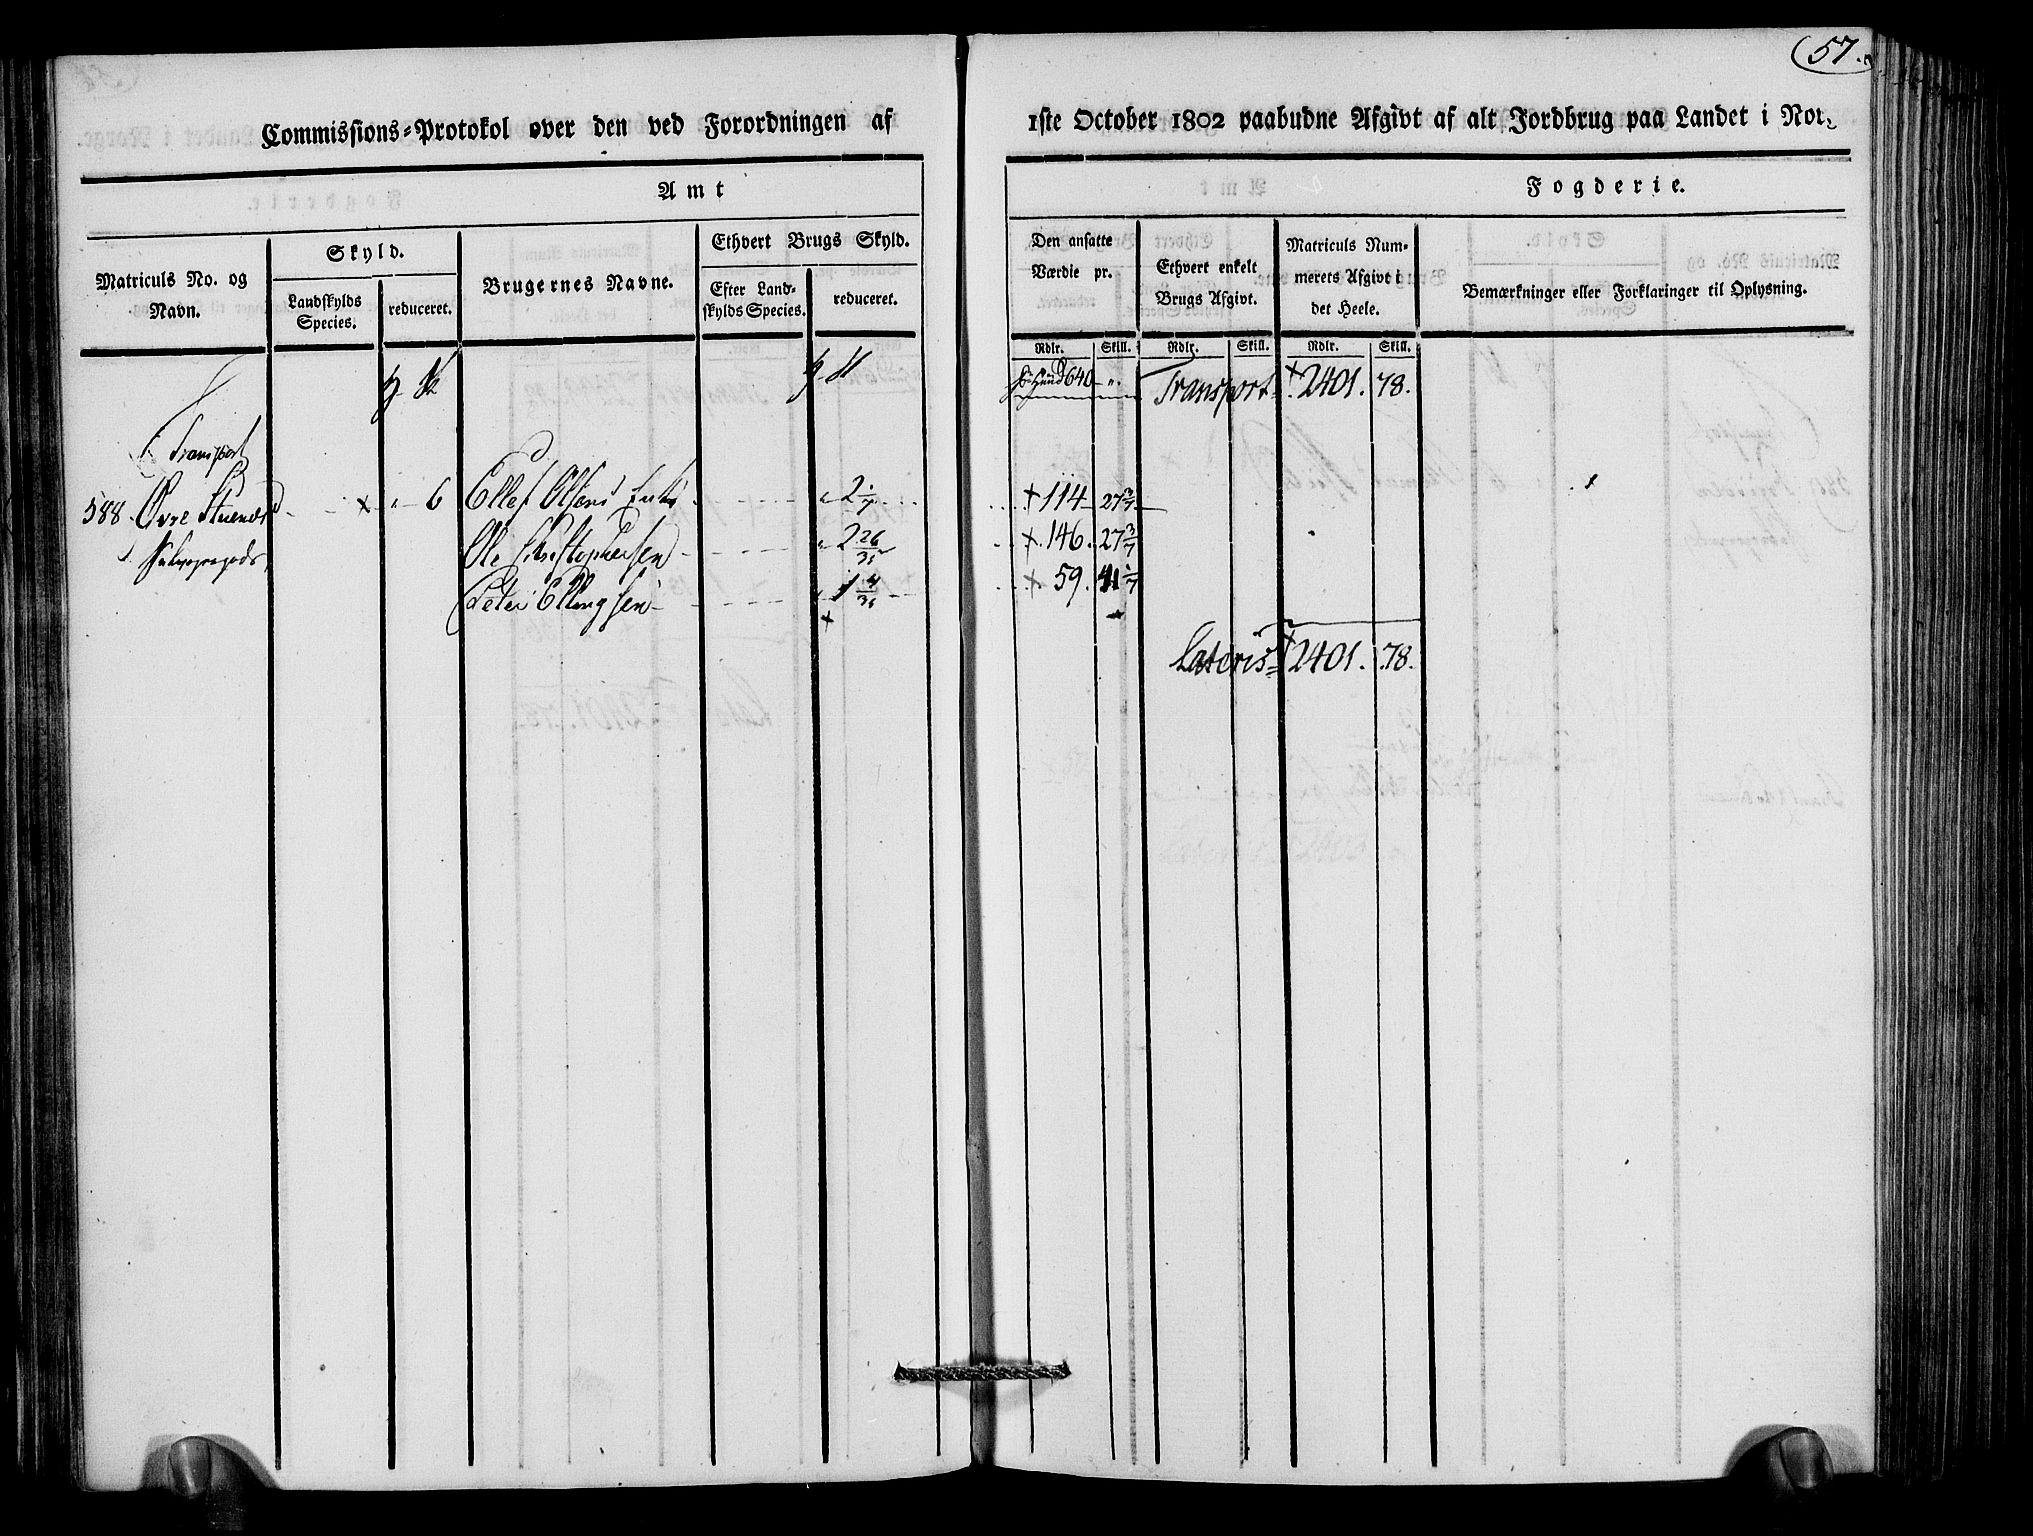 57.
Commissions-Protokol over den ved Forordningen af 1ste October 1802 paabudne Afgivt af alt Jordbrug paa Landet i Nor-
Amt
Fogderie.
Matriculs No. og Navn.
Skyld.
Landskylds Species.
reduceret.
Brugernes Navne.
Ethvert Brugs Skyld.
Efter Landskylds Species.
reduceret.
Den ansatte Værdie pr.
Ethvert enkelt Brugs Afgivt.
Matriculs Nummerets Afgivt i det Heele.
Bemærkninger eller Forklaringer til Oplysning.
Rdlr. Skill. Rdlr. Skill. Rdlr. Skill.
640 — „. Transport 2401. 78.
Transport
588. Øvre 6 Ellef Olsens Enke 2 1/7 114 27 3/7
Ole Christophersen 2 26/35 146. 27 3/7
Peter Ellingsen 1 4/35 59. 41 1/7
Lateris 2401. 78.